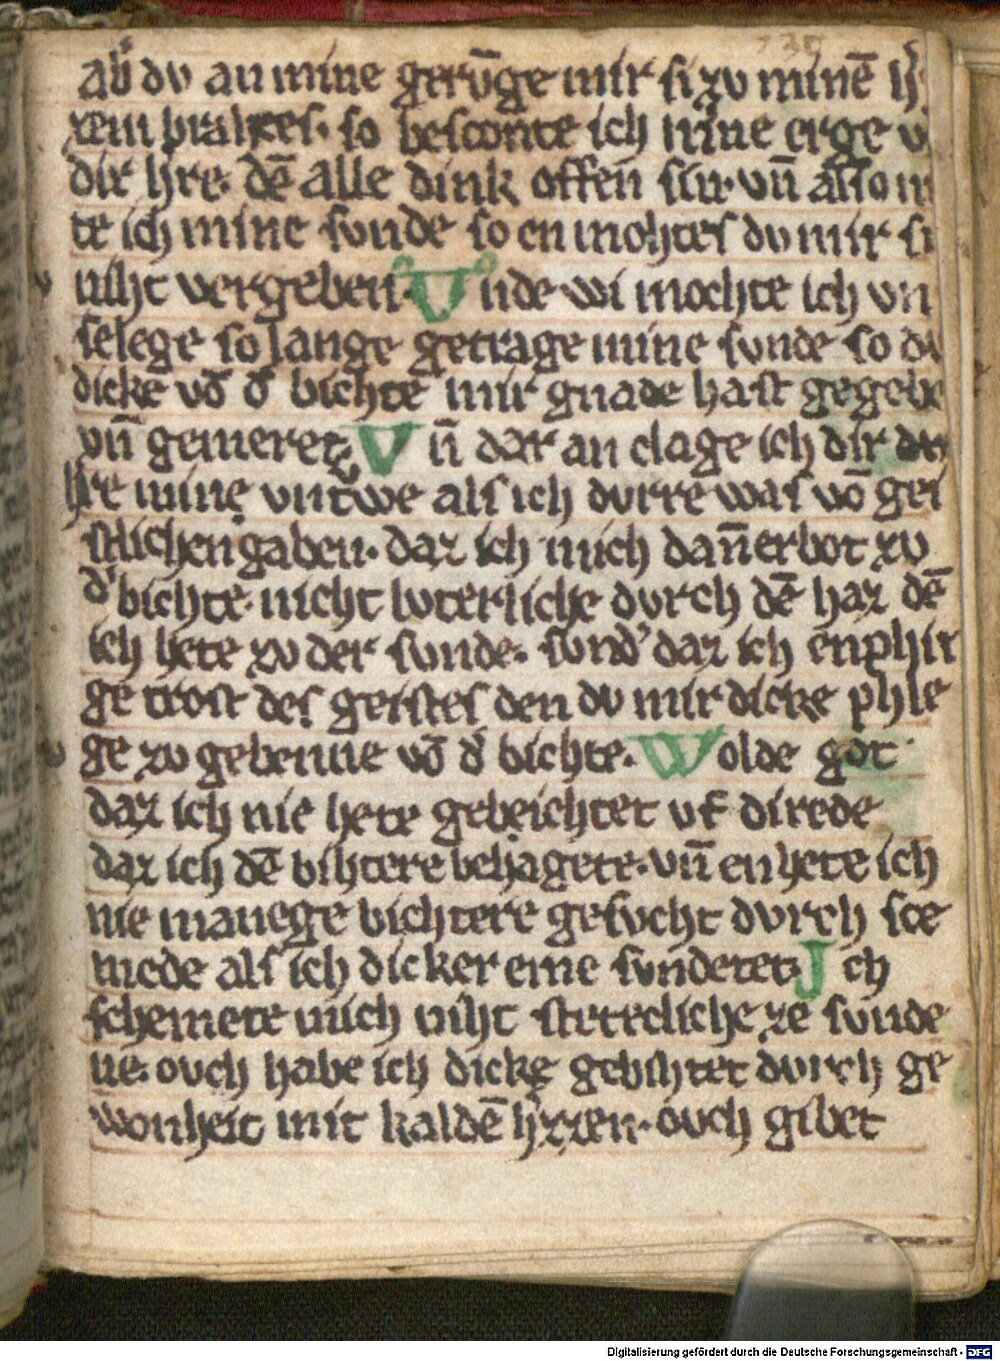 du an mine gervͦge mir si zv minē
so besconte ich mine erge
dir hre. dē alle dink offen sin. vn̄ also
te ich mine sunde so en mohtes du mir
niht vergeben. Vnde wi mochte ich vn
selege so lange getrage mine sunde so
dicke vō d' bichte mir gnade hast gegebe
vn̄ gemeret. Vn̄ dar an clage ich dir
hre mine vntwe als ich durre was vō gei
stlichen gaben. daz ich mich dan̄ erbot zv
d' bichte. nicht luterliche durch dē haz dē
ich hete zv der sunde. sund' daz ich enphin
ge trost des geistes den du mir dicke phle
ge zv gebenne vō d' bichte. Wolde got
daz ich nie hete gebeichtet vf di rede
daz ich dē bihtere behagete. vn̄ en hete ich
nie manege bichtere gesucht durch sce
mede als ich dicker eine sunderet. Ich
schemete mich niht steteliche ze sunde
ne. ouch habe ich dicke gebihtet durch ge
wonheit mit kaldē h'zzen. ouch gibet
Digitalisierung gefördert durch die Deutsche Forschungsgemeinschaft - DFG